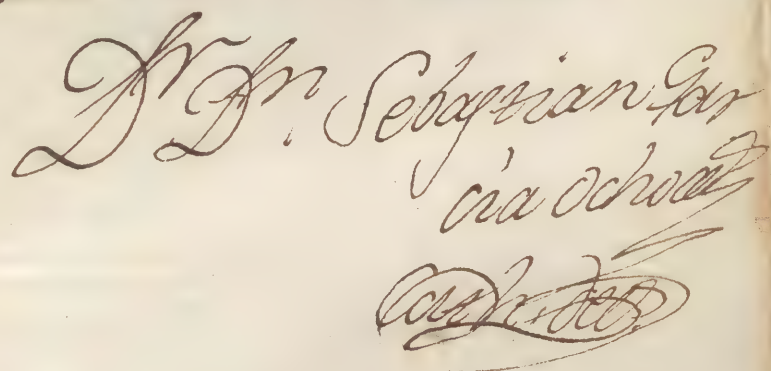 Dr Dn. Sebastian Gar
cia Ochoa